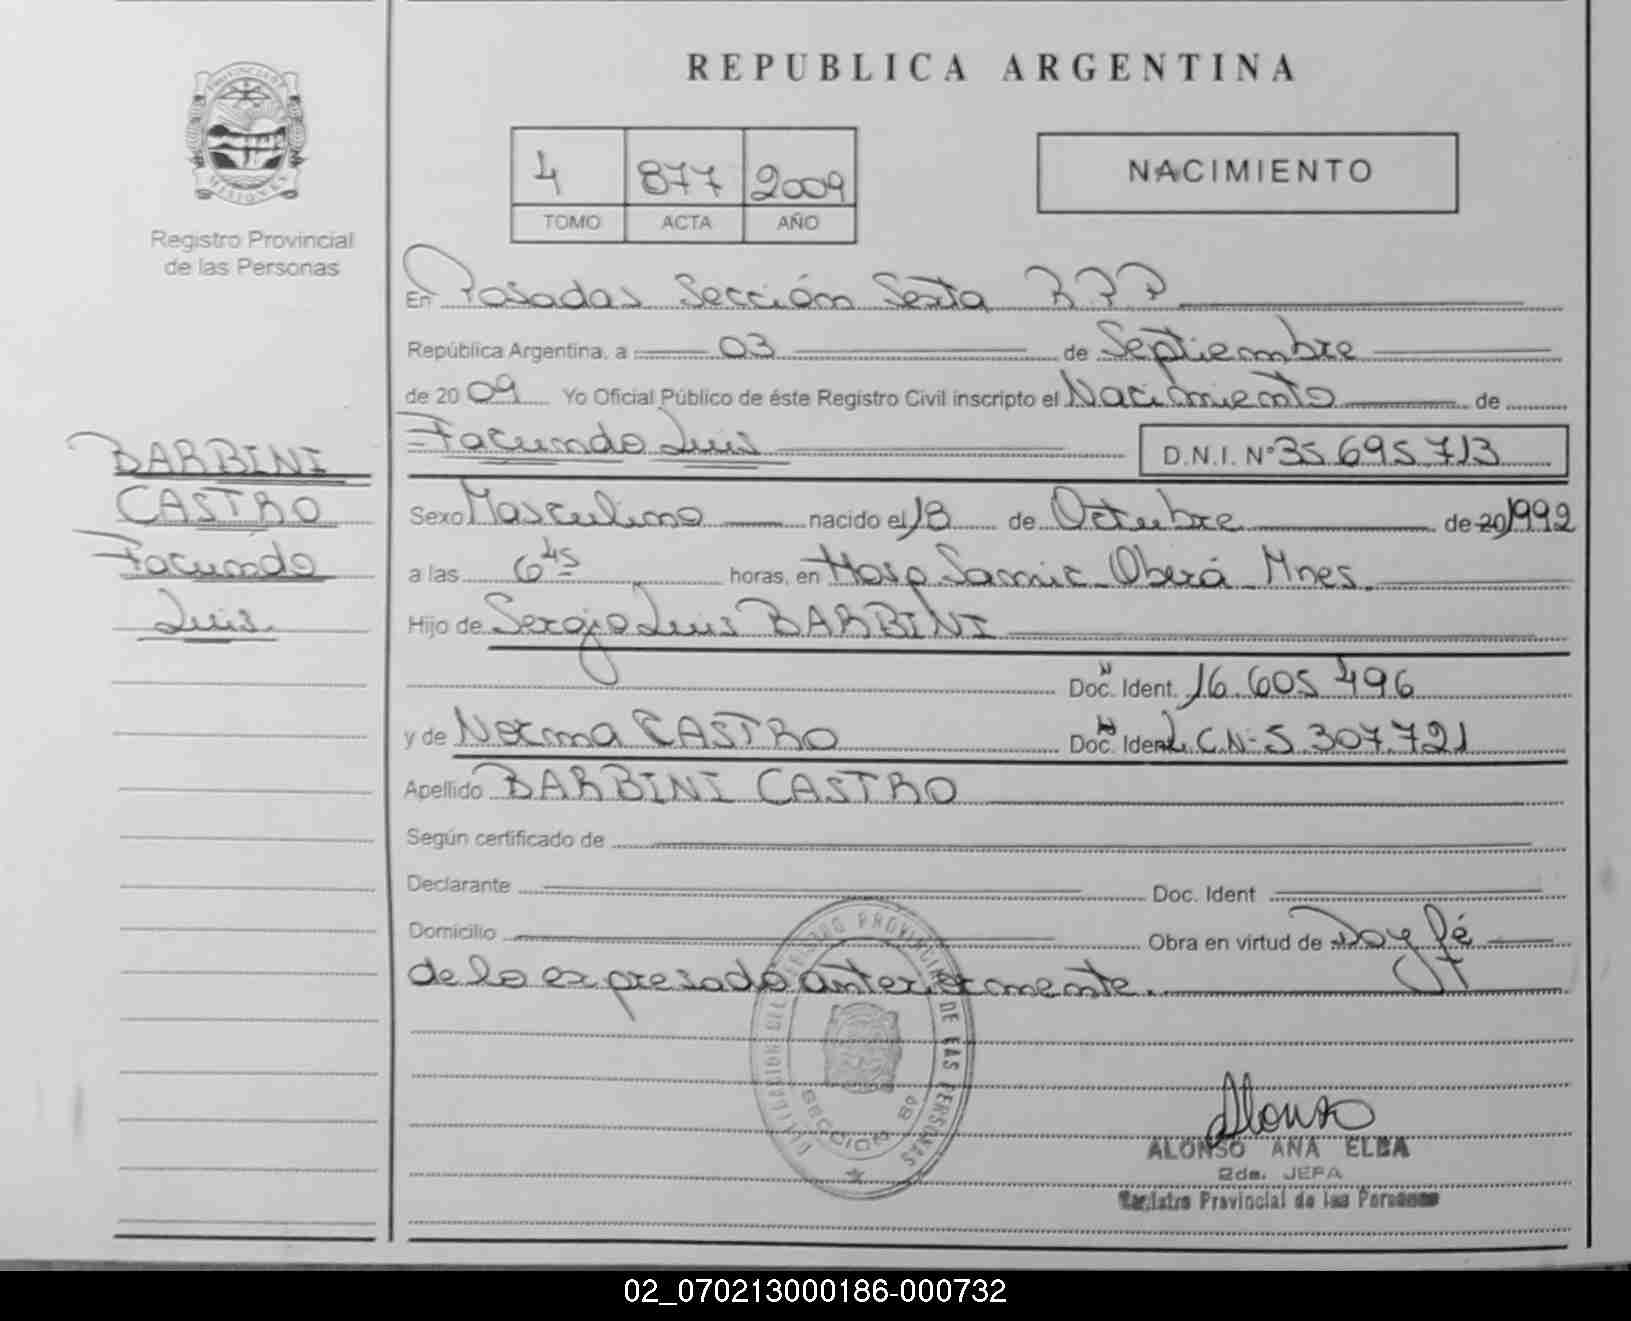 REPUBLICA ARGENTINA
PROVINCIA DE
MISIONES
Registro Provincial
de las Personas
4 877 2009
TOMO ACTA AÑO
NACIMIENTO
En Posadas Sección Sexta R P P
República Argentina, a 03 de Septiembre
de 2009 Yo Oficial Público de éste Registro Civil inscripto el Nacimiento de
Facundo Luis D.N.I. Nº 35.695.713
BARBINI
CASTRO
Facundo
Luis
Sexo Masculino nacido el 18 de Octubre de 20 1992
a las 6 45 horas, en Hosp. Samic Oberá Mnes.
Hijo de Sergio Luis BARBINI
Doc. Ident. 16.605.496
y de Norma CASTRO Doc. Ident. L.C.Nº 5.307.721
Apellido BARBINI CASTRO
Según certificado de
Declarante Doc. Ident
Domicilio Obra en virtud de Doy fé
de lo expresado anteriormente.
PROVINCIAL DE LAS PERSONAS
SECCION
Alonso
ALONSO ANA ELBA
2da. JEFA
Registro Provincial de las Personas
02_070213000186-000732